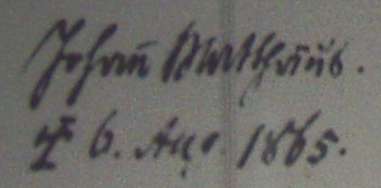 Johann Matthäus.
6. Aug. 1865.